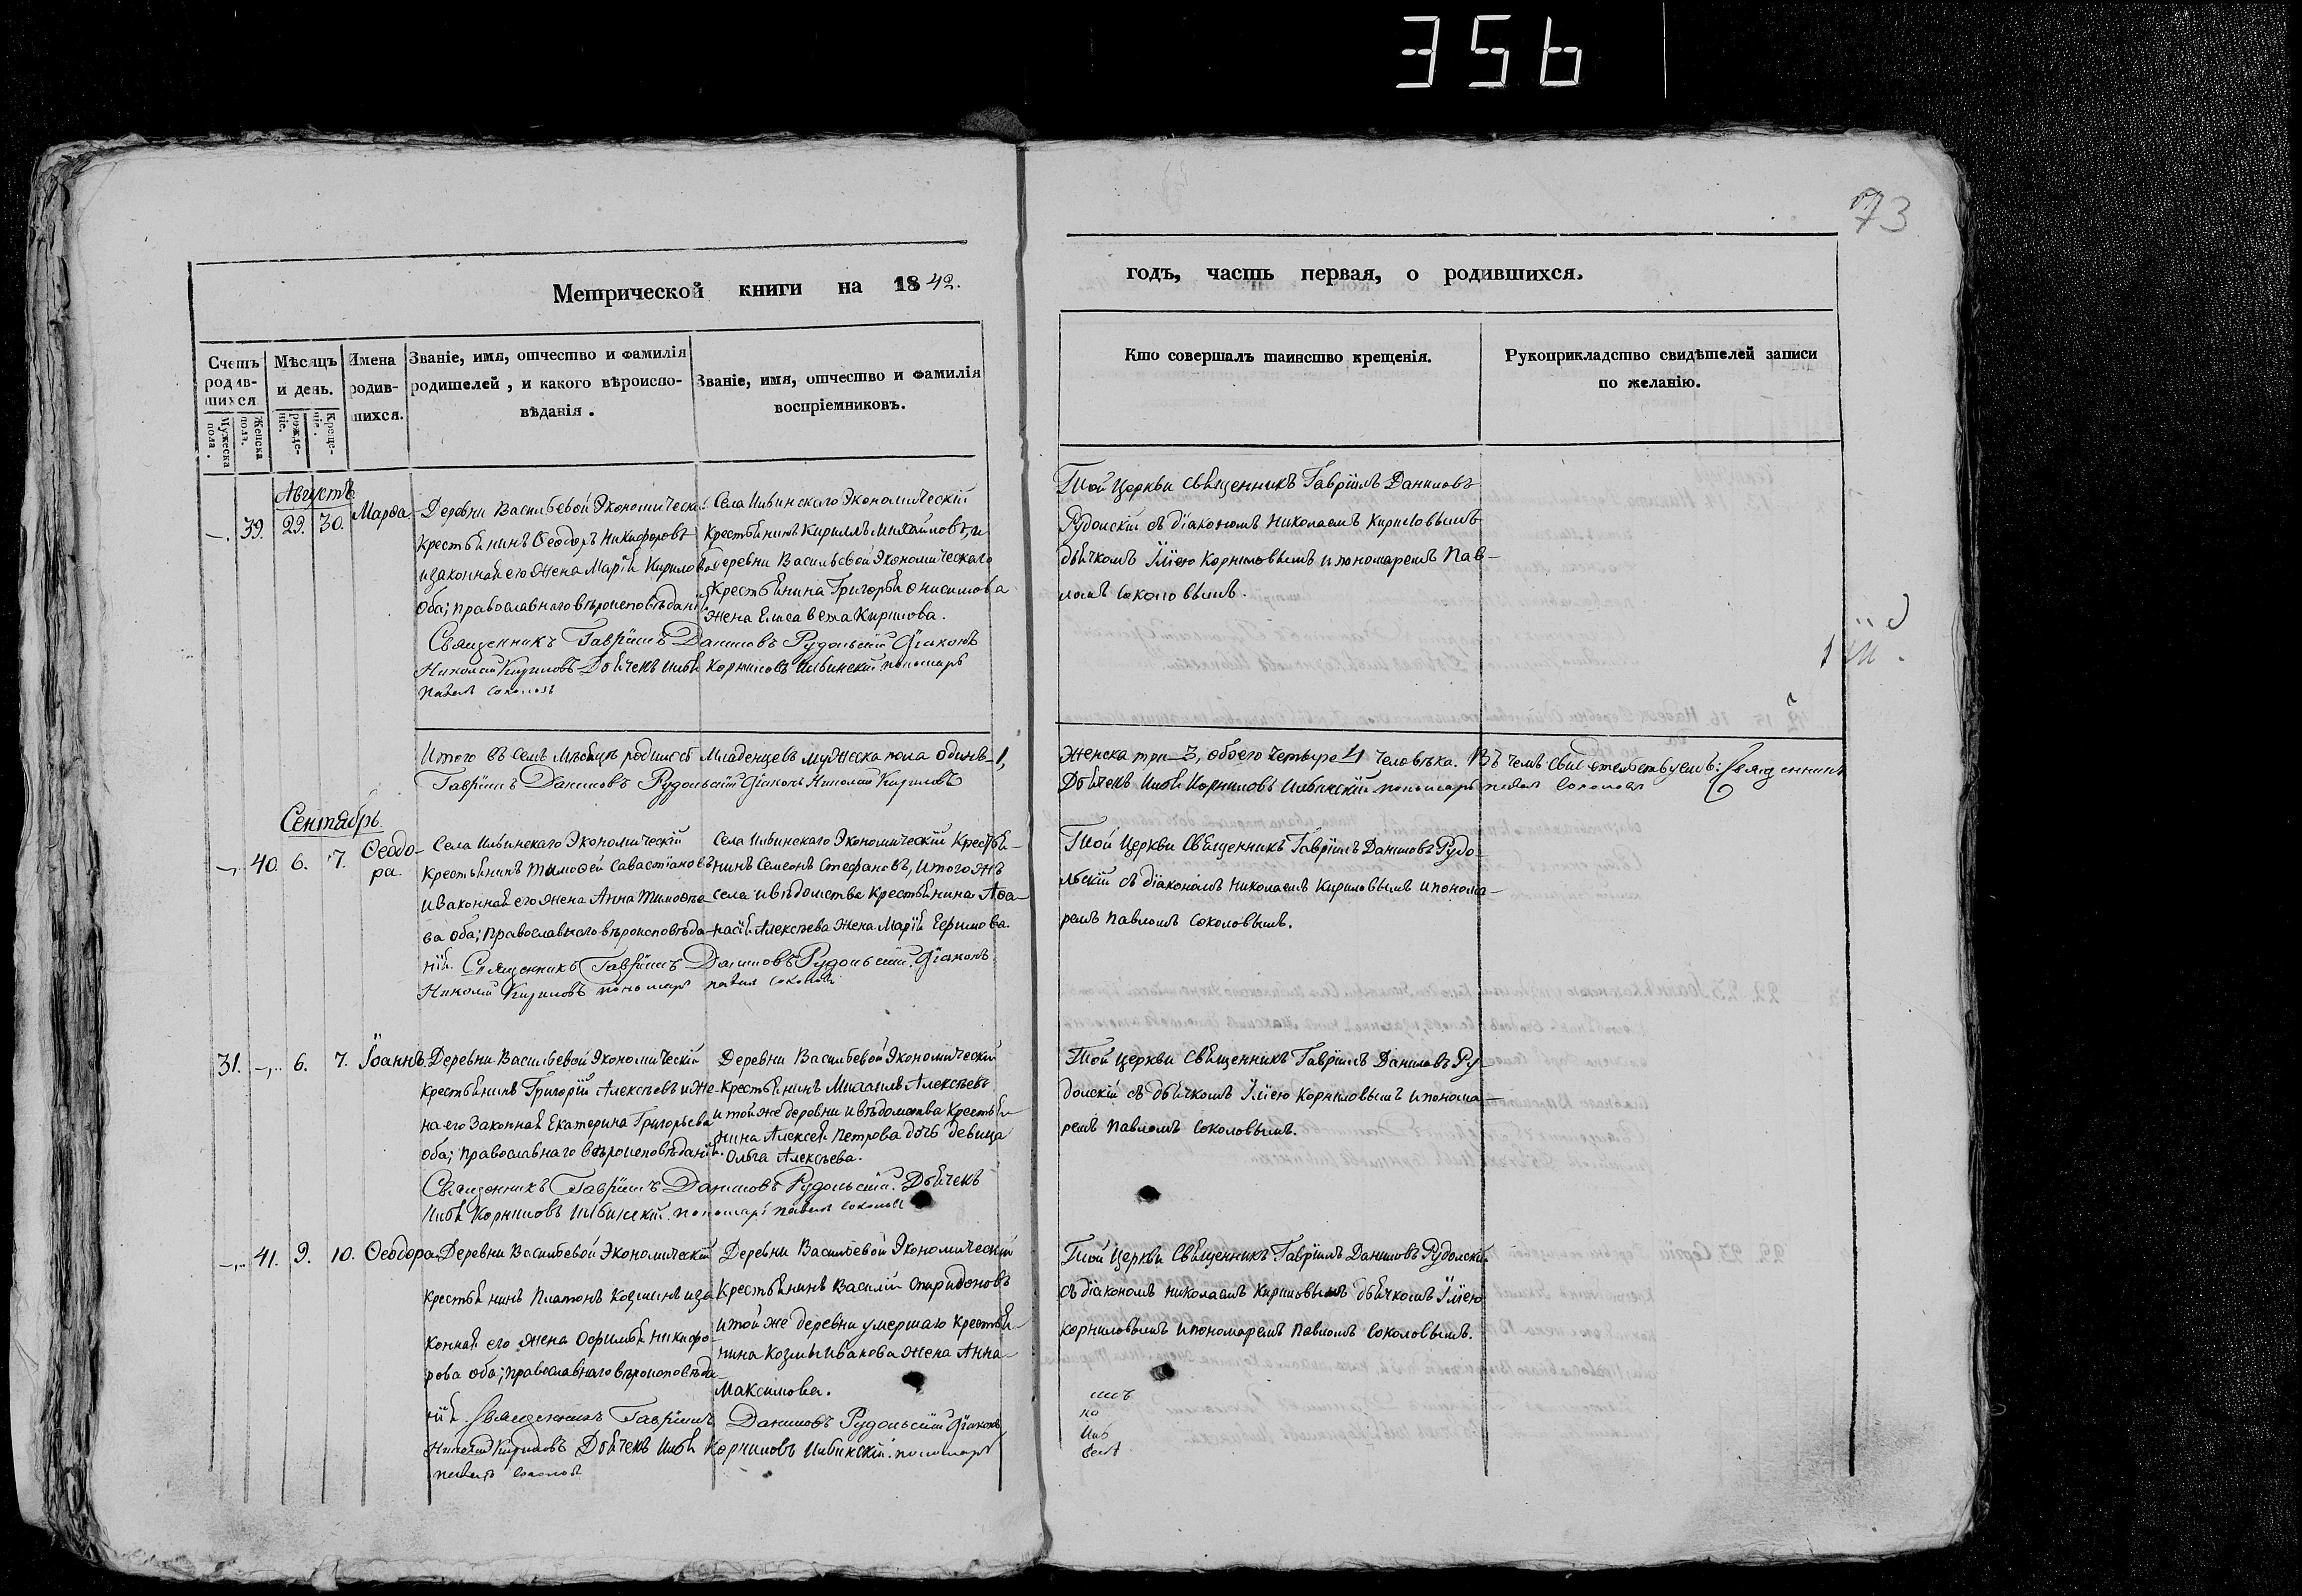 356
73
Метрической книги на 1842.
годъ, часть первая, о родившихся.
Счетъ родив-шихся
Мужеска пола.
Женска пола.
Мѣсяцъ и день.
Рожде-ніе.
Креще-ніе.
Имена родив-шихся.
Званіе, имя, отчество и фамилія
родителей, и какого вѣроиспо-
вѣданія.
Званіе, имя, отчество и фамилія
воспріемниковъ.
Кто совершалъ таинство крещенія.
Рукоприкладство свидѣтелей записи
по желанію.
Августъ
39. 29. 30. Марѳа
Деревни Васильевой Экономическій
крестьянинъ Ѳеодоръ Никифоровъ
и законная его жена Марія Кирилова
оба; православнаго вѣроисповѣданія
Села Ильинскаго Экономическій
Крестьянинъ Кириллъ Михайловъ, и
деревни Васильевой Экономическаго
Крестьянина Григорья Онисимова
жена Елисавета Кирилова.
Священникъ Гавріилъ Даниловъ Рудольскій Діаконъ
Николай Кириловъ Дьячекъ Илья Корниловъ Ильинскій пономарь
Павелъ Соколовъ
Той Церкви священникъ Гавріилъ Даниловъ
Рудолскій съ діакономъ Николаемъ Кириловымъ
дьячкомъ Иліею Корниловымъ и пономаремъ Пав-
ломъ Соколовымъ.
Итого въ семъ мѣсяцѣ родилось младенцевъ мужеска пола одинъ-1,
женска три-3, обоего четыре 4 человѣка. Въ чемъ свидетельствуемъ: Священникъ
Гавріилъ Даниловъ Рудольскій Діаконъ Николай Кириловъ
Дьячекъ Илья Корниловъ Ильинскій пономарь Павелъ Соколовъ
Сентябрь.
40. 6. 7. Ѳеодо-
ра.
Села Ильинскаго Экономическій
крестьянинъ Тимоѳей Савастіановъ
и законная его жена Анна Тимоѳее-
ва оба; православнаго вѣроисповѣда-
нія.
Села Ильинскаго Экономическій Крестья-
нинъ Семенъ Стефановъ, и того жъ
села и вѣдомства крестьянина Аѳа-
насія Алексѣева жена Марія Ефимова.
Священникъ Гавріилъ Даниловъ Рудольскій. Діаконъ
Николай Кириловъ пономарь Павелъ Соколовъ
Той Церкви Священникъ Гавріилъ Даниловъ Рудо-
льскій съ діакономъ Николаемъ Кириловымъ и понома-
ремъ Павломъ Соколовымъ.
31. 6. 7. Іоаннъ.
Деревни Васильевой Экономическій
крестьянинъ Григорій Алексѣевъ и же-
на его Законная Екатерина Григорьева
оба; православнаго вѣроисповѣданія.
Деревни Васильевой Экономическій
крестьянинъ Михаилъ Алексѣевъ
и той же деревни и вѣдомства крестья-
нина Алексея Петрова дочь девица
Ольга Алексѣева.
Священникъ Гавріилъ Даниловъ Рудольскій. Дьячекъ
Илья Корниловъ Ильинскій. пономарь Павелъ Соколовъ
Той Церкви Священникъ Гавріилъ Даниловъ Ру-
долскій съ дьячкомъ Иліею Корниловымъ и понома-
ремъ Павломъ Соколовымъ.
41. 9. 10. Ѳеодора
Деревни Васильевой Экономическій
крестьянинъ Платонъ Козминъ и за-
конная его жена Ѳ­­­­­­­­­­­­­­­­­­­­­­­­­­­­­­­­­­­­офимья Никифо-
рова оба; православнаго вѣроисповѣда-
нія.
Деревни Васильевой Экономическій
Крестьянинъ Василій Спиридоновъ
и той же деревни умершаго крестья-
нина Козмы Иванова жена Анна
Максимова.
Священникъ Гавріилъ Даниловъ Рудольскій Діаконъ
Николай Кириловъ Дьячекъ Илья Корниловъ Ильинскій. пономарь
Павелъ Соколовъ
Той Церкви Священникъ Гавріилъ Даниловъ Рудолскій
съ діакономъ Николаемъ Кириловымъ дьячкомъ Иліею
Корниловымъ и пономаремъ Павломъ Соколовымъ.